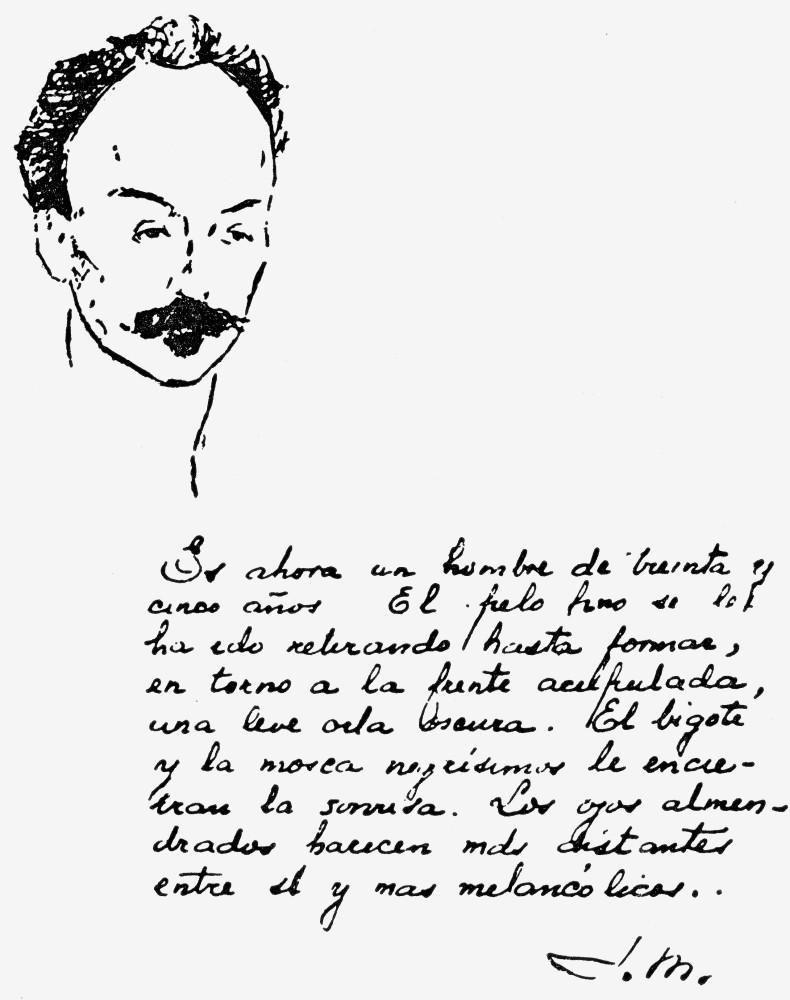 Es ahora un hombre de treinta y
cinco años El pelo fino se le
ha ido retirando hasta formar,
en torno a la frente acupulada,
una leve orla oscura. El bigote
y la mosca negrísimos le encie-
rran la sonrisa. Los ojos almen-
drados parecen más distantes
entre sí y mas melancólicos..
J. M.